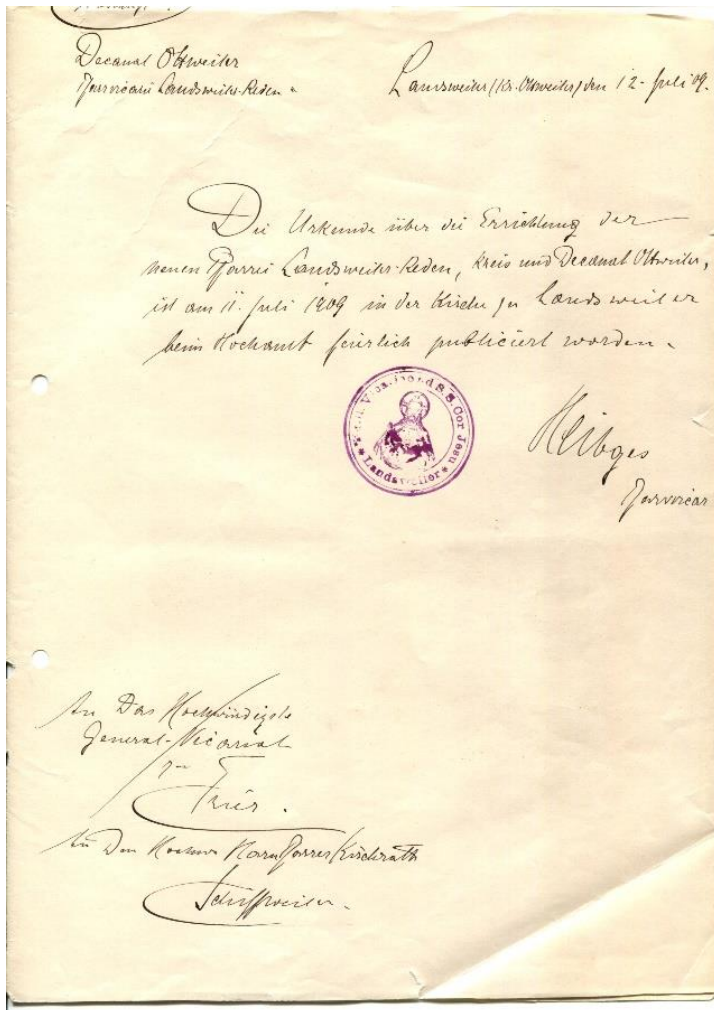 Decanat Ottweiler
Pfarrvicarie Landsweiler-Reden
Landsweiler (Kr. Ottweiler) den 12. Juli 09.
Die Urkunde über die Errichtung der
neuen Pfarrei Landsweiler-Reden, Kreis und Decanat Ottweiler,
ist am 11. Juli 1909 in der Kirche zu Landsweiler
beim Hochamt feierlich publiciert worden.
S.S. Cor Jesu
Landsweiler
Heibges
Pfarrvicar
An Das Hochwürdigste
General-Vicariat
zu
Trier.
An Den Herrn Pfarrer
Schiffweiler.